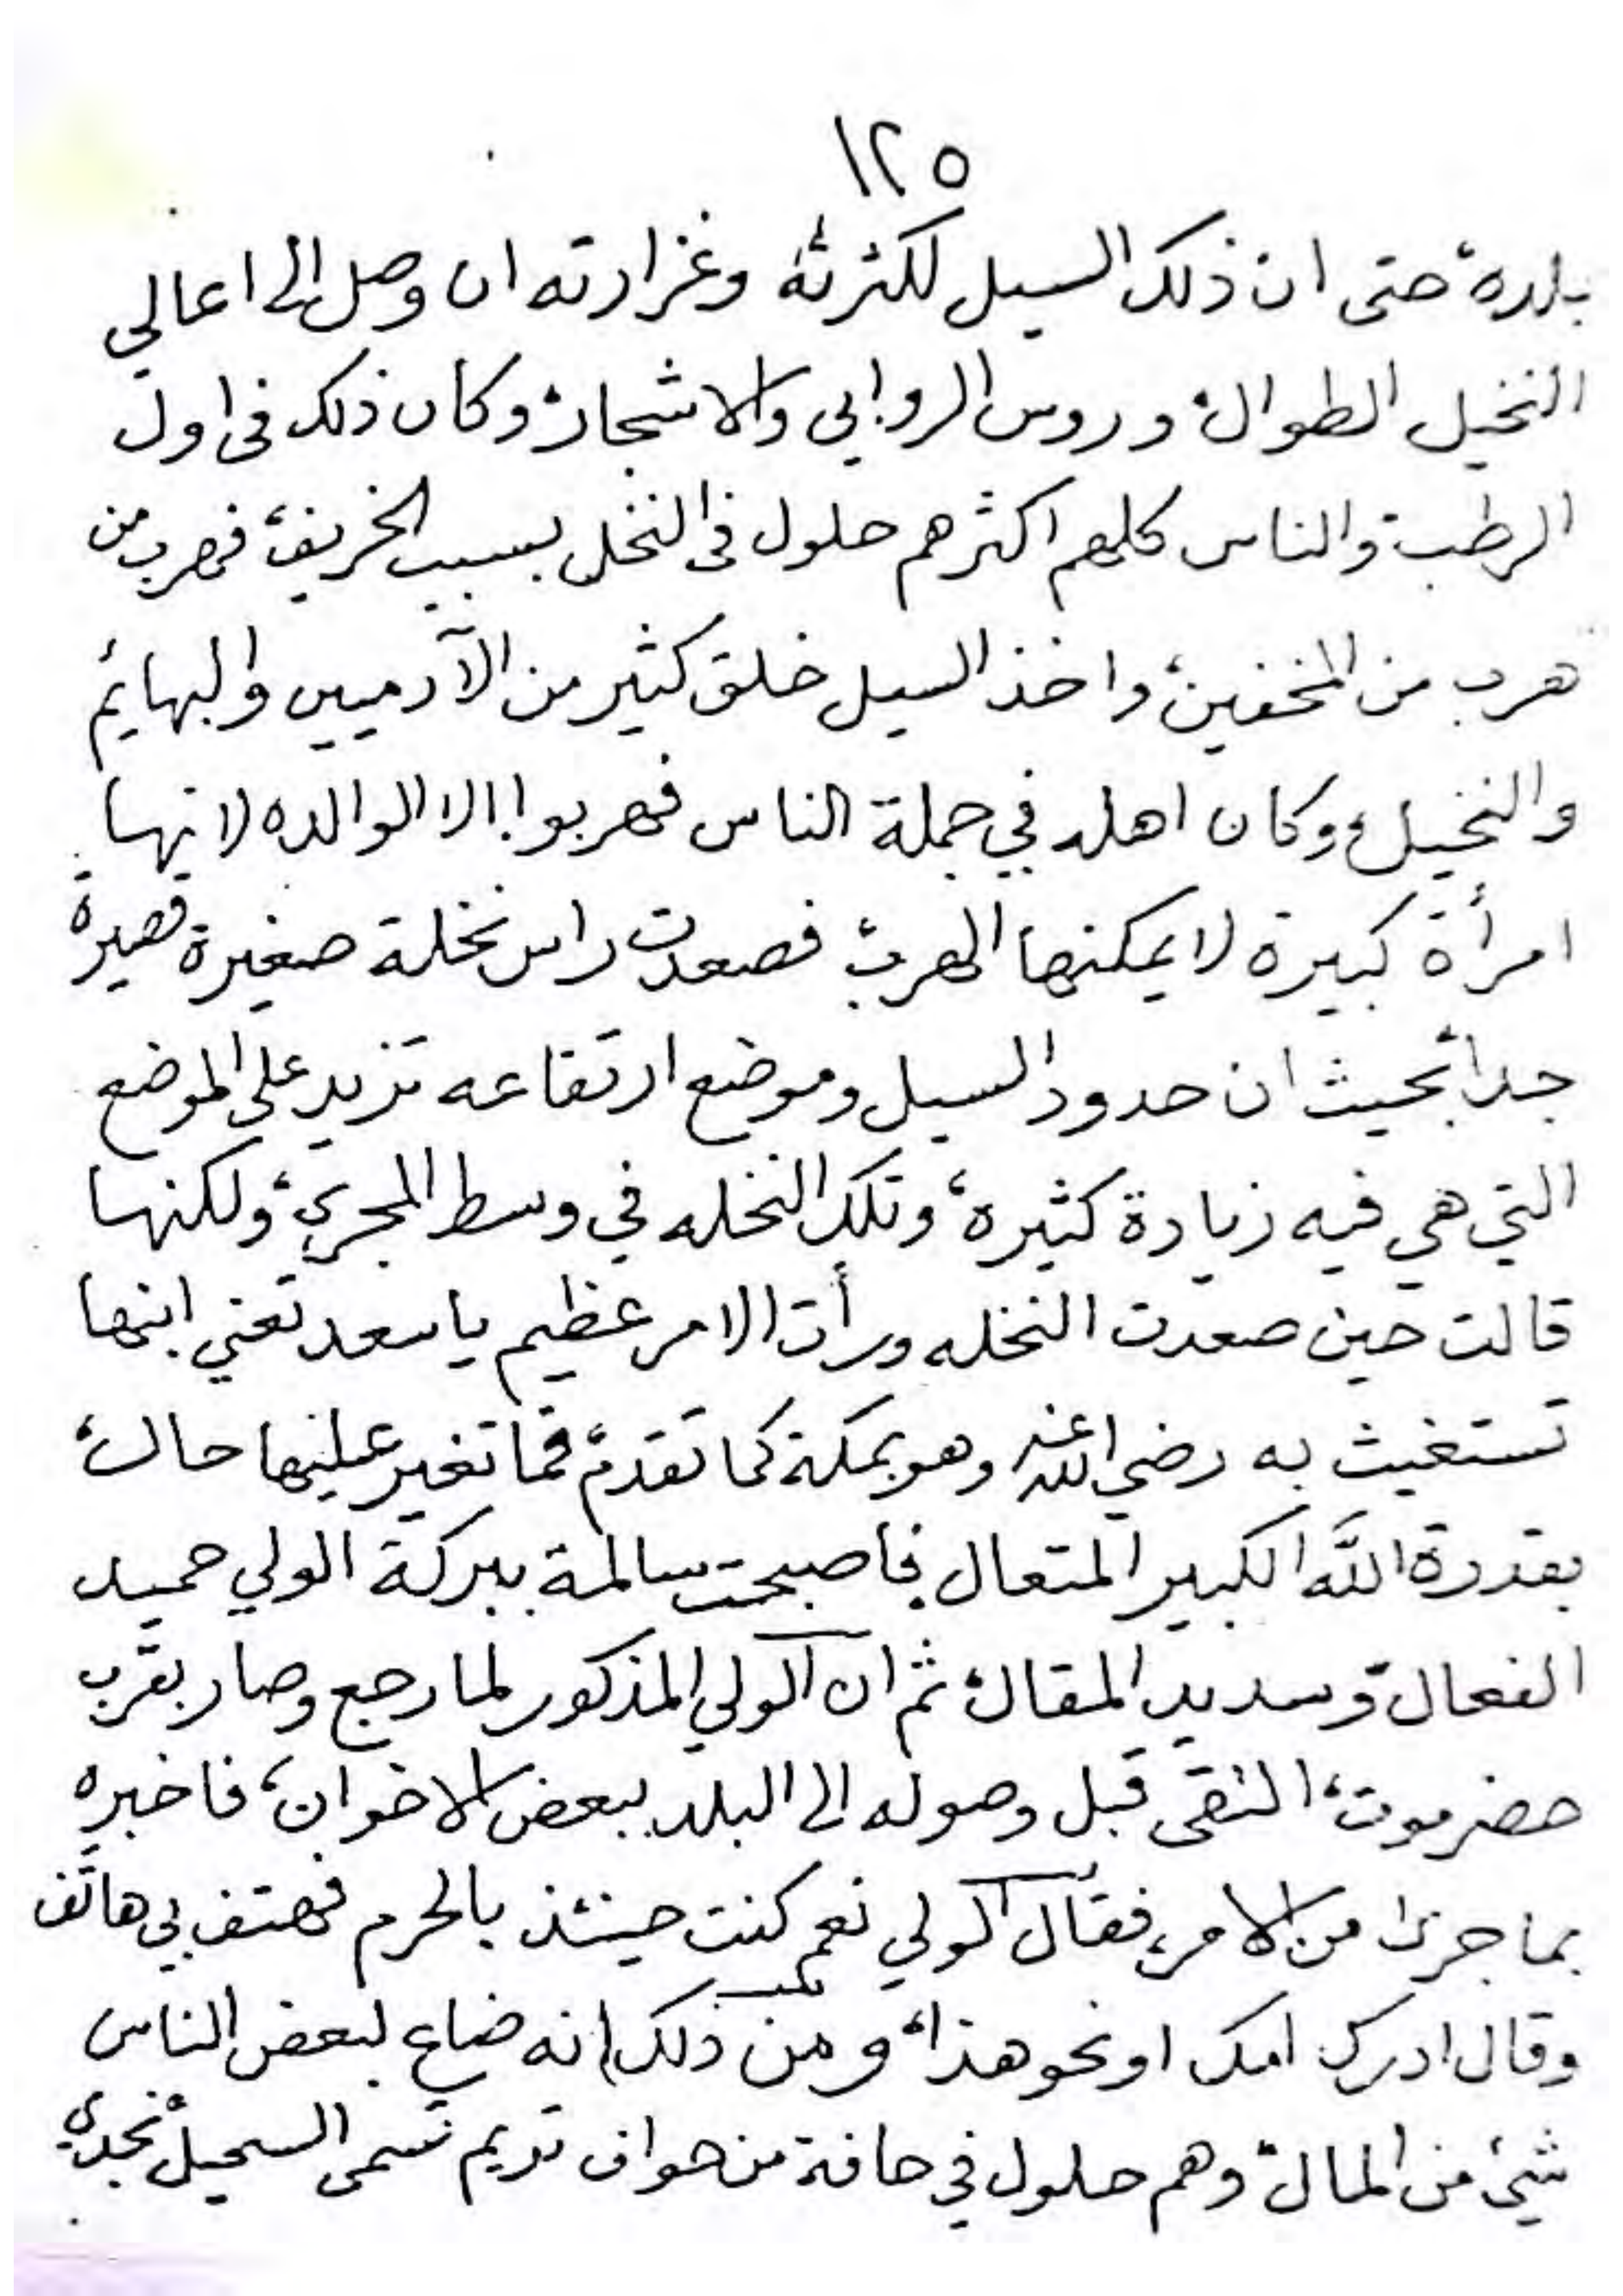 ١٢٥
بلده، حتى ان ذلك السيل لكثرته وغزارته ان وصل إلى اعالي
النخيل الطوال، وروس الروابي والاشجار، وكان ذلك في اول
الرطب، والناس كلهم اكثرهم حلول في النخل بسبب الخريف، فهرب من
هرب من المخفين، واخذ السيل خلق كثير من الآدميين والبهايم
والنخيل، وكان اهله في جملة الناس فهربوا، الا الوالده لانها
امرأة كبيرة لا يمكنها الهرب، فصعدت راس نخلة صغيرة قصيرة
جداً بحيث ان حدود السيل وموضع ارتفاعه تزيد على الموضع
التي هي فيه زيادة كثيرة، وتلك النخله في وسط المجرى، ولكنها
قالت حين صعدت النخله ورأت الامر عظيم يا سعد تعني ابنها
تستغيث به رضي الله عنه وهو بمكة كما تقدم، فما تغير عليها حال،
بقدرة الله الكبير المتعال، فاصبحت سالمة ببركة الولي حميد
الفعال، وسديد المقال، ثم ان الولي المذكور لما رجع وصار بقرب
حضرموت، التقى قبل وصوله الى البلد ببعض الاخوان، فاخبره
بما جرى من الامر، فقال الولي نعم كنت حينئذ بالحرم فهتف بي هاتف
وقال ادرك امك او نحو هذا، ومن ذلك انه ضاع لبعض الناس
شيئ من المال، وهم حلول في حافة من حواف تريم تسمى السحيل، نجدي